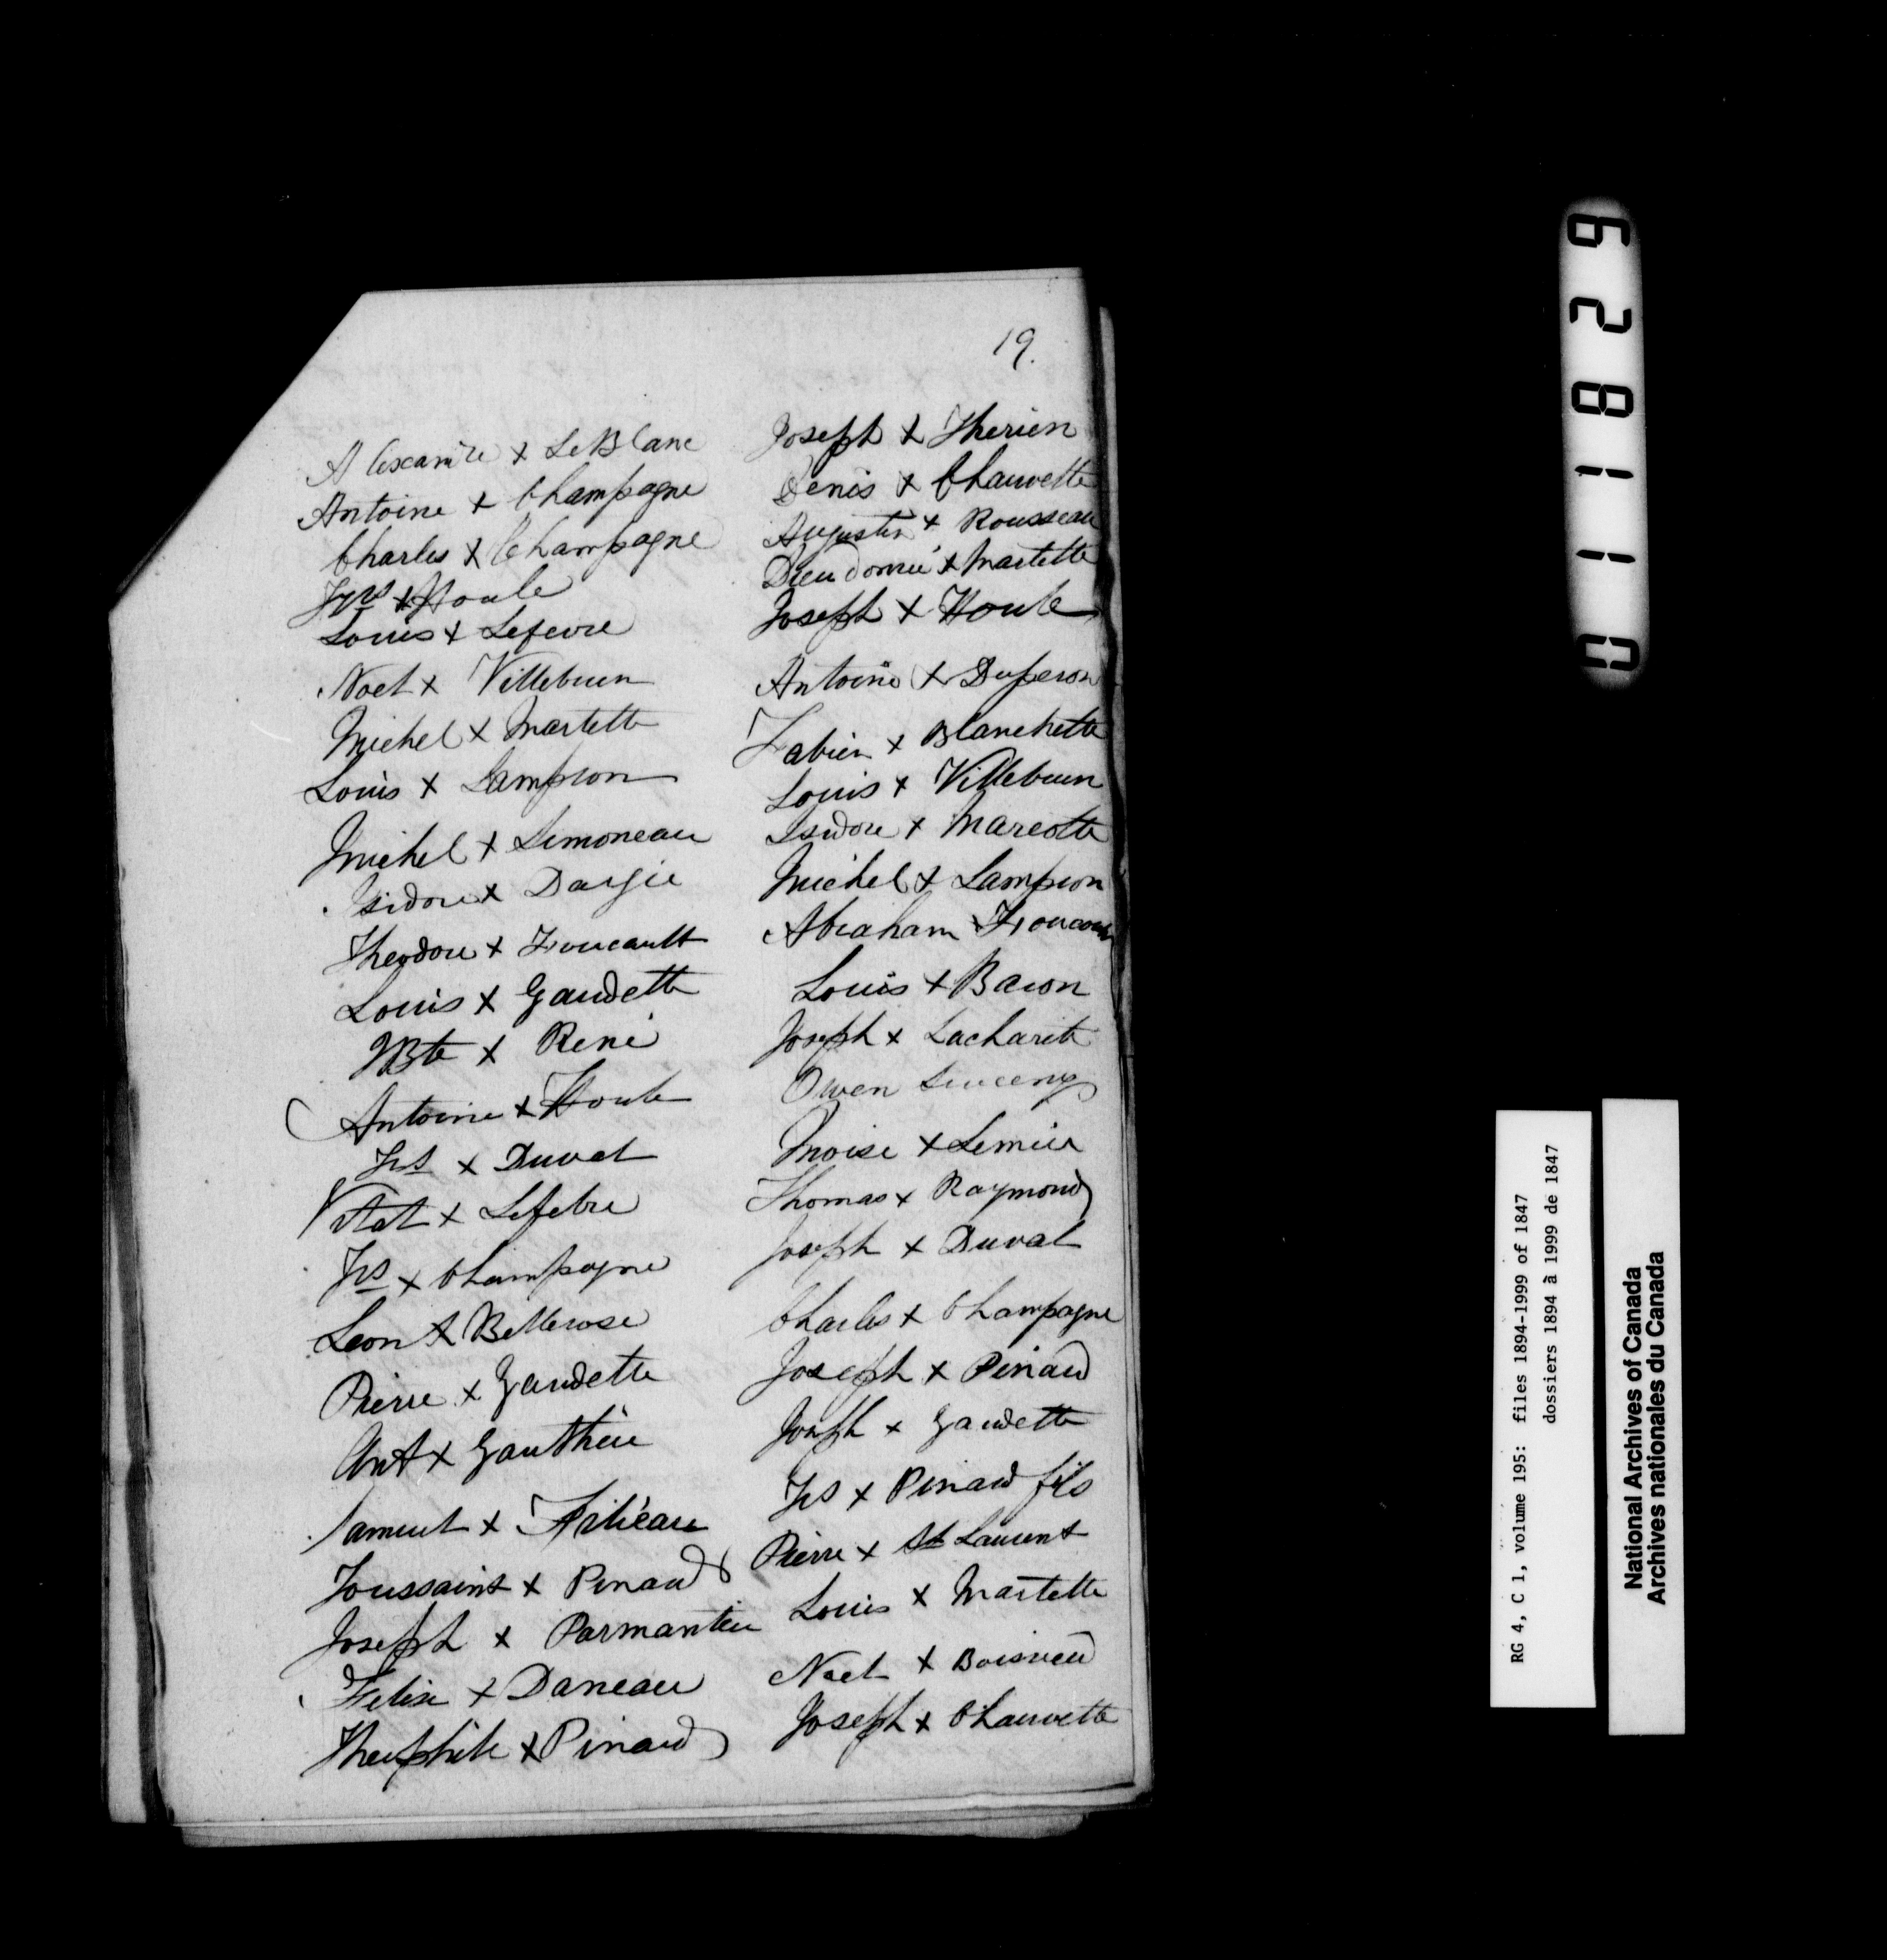 19.
Alexandre x LeBlanc
Antoine x Champagne
Charles x Champagne
x Houle
Louis x Lefevre
Noel x Villebrun
Michel x Martelle
Louis x Lampron
Michel x Simoneau
Isidore x
Theodore x Foucault
Louis x Gaudette
JBte x René
Antoine x Houle
Frs x Duval
Vital x Lefebre
Frs x Champagne
Leon x Bellerose
Pierre x Gaudette
Ant x Gauthier
Samuel x
Toussaint x Pinard
Joseph x Parmantier
Felix x Daneau
Theophile x Pinard
Joseph x Therien
Denis x Chauvette
Augustin x Rousseau
Dieudonné x Martelle
Joseph x Houle
Antoine x Duperon
Fabien x Blanchette
Louis x Villebrun
Isidore x Marcotte
Michel x Lampron
Abraham x
Louis x Baron
Joseph x Lacharite
Owen
Moise x Lemire
Thomas x Raymond
Joseph x Duval
Charles x Champagne
Joseph x Pinard
Joseph x Gaudette
Frs x Pinard fils
Pierre x St Laurent
Louis x Martelle
Noel x Boisverd
Joseph x Chauvette
011829
RG 4, C 1, volume 195: files 1894-1999 of 1847
dossiers 1894 à 1999 de 1847
National Archives of Canada
Archives nationales du Canada